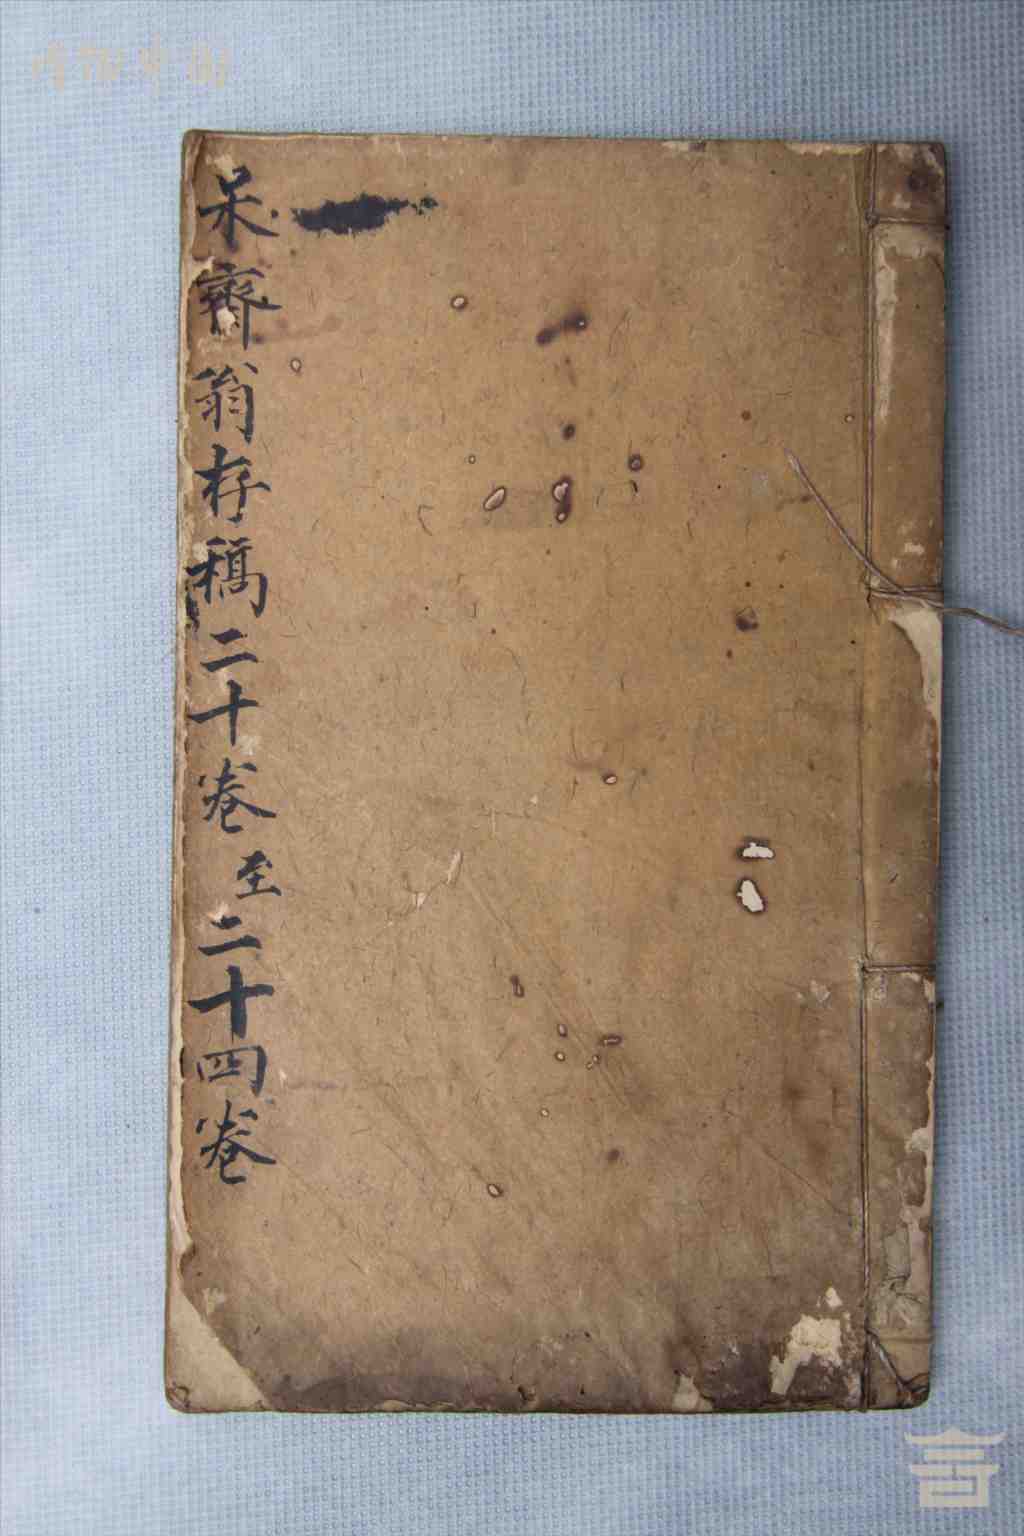 呆齋翁存稿二十卷至二十四卷